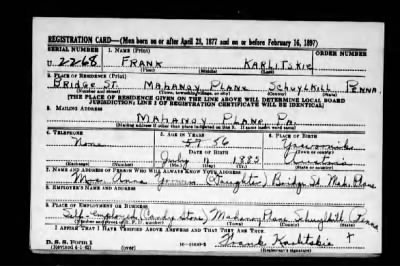 REGISTRATION CARD—(Men born on or after April 28, 1877 and on or before February 16, 1897)
SERIAL NUMBER 1. NAME (Print) ORDER NUMBER
U 2268 FRANK KARLITSKIE
(First) (Middle) (Last)
2. PLACE OF RESIDENCE (Print)
BRIDGE ST. MAHANOY PLANE SCHUYLKILL PENNA.
(Number and street) (Town, township, village, or city) (County) (State)
[THE PLACE OF RESIDENCE GIVEN ON THE LINE ABOVE WILL DETERMINE LOCAL BOARD
JURISDICTION; LINE 2 OF REGISTRATION CERTIFICATE WILL BE IDENTICAL]
3. MAILING ADDRESS
MAHANOY PLANE, PA.
[Mailing address if other than place indicated on line 2. If same insert word same]
4. TELEPHONE 5. AGE IN YEARS 6. PLACE OF BIRTH
None 56
DATE OF BIRTH (Town or county)
July 11 1885 Austria
(Exchange) (Number) (Mo.) (Day) (Yr.) (State or country)
7. NAME AND ADDRESS OF PERSON WHO WILL ALWAYS KNOW YOUR ADDRESS
Mrs. Anna (Daughter) Bridge St. Mah. Plane
8. EMPLOYER'S NAME AND ADDRESS
Self-employed (Candy Store) Mahanoy Plane Schuylkill Penna
9. PLACE OF EMPLOYMENT OR BUSINESS
(Number and street or R. F. D. number) (Town) (County) (State)
I AFFIRM THAT I HAVE VERIFIED ABOVE ANSWERS AND THAT THEY ARE TRUE.
D. S. S. Form 1
(Revised 4-1-42) Frank Karlitskie
(Registrant's signature)